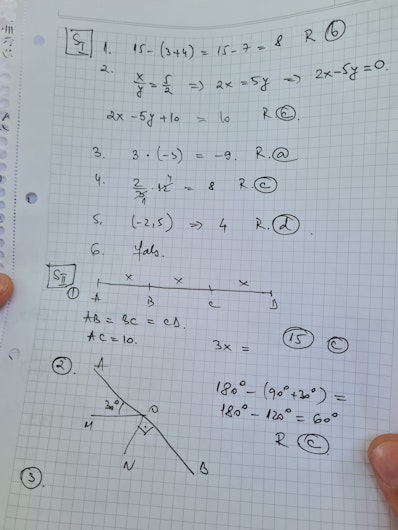 S I 1. 15 - (3+4) = 15 - 7 = 8 R (b)
2. x/y = 5/2 => 2x = 5y => 2x-5y=0.
2x - 5y + 10 = 10 R (c).
3. 3 · (-3) = -9. R. (a)
4. 8 R (c)
5. (-2,5) => 4 R. (d)
6. Fals.
S II
x x x
(1) A B C D
AB = BC = CD.
AC = 10. 3x = (15) (c)
(2). A
30° O
M
N
B
180° - (90°+30°) =
180° - 120° = 60°
R (c)
(3).